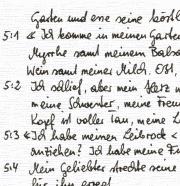 Garten und esse seine köstl
5:1 « Ich komme in meinen Garten
Myrrhe samt meinem Balsa
Wein samt meiner Milch. Eßt,
5:2 Ich schlief, aber mein Herz w
meine Schwester, meine Freun
Kopf ist voller Tau, meine L
5:3 «Ich habe meinen Leibrock «
anziehen? Ich habe meine F
5:4 Mein Geliebter streckte seine
für ihn erregt